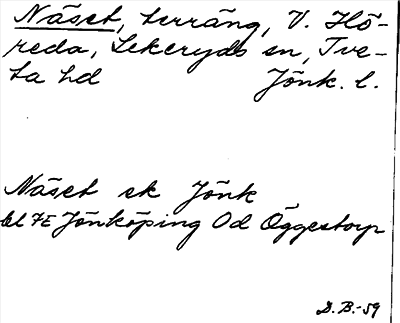 Näset, terräng, V. Hö-
reda, Lekeryds sn, Tve-
ta hd Jönk. l.
Näset ek Jönk
bl 7E Jönköping Od Öggestorp
D. B. -59